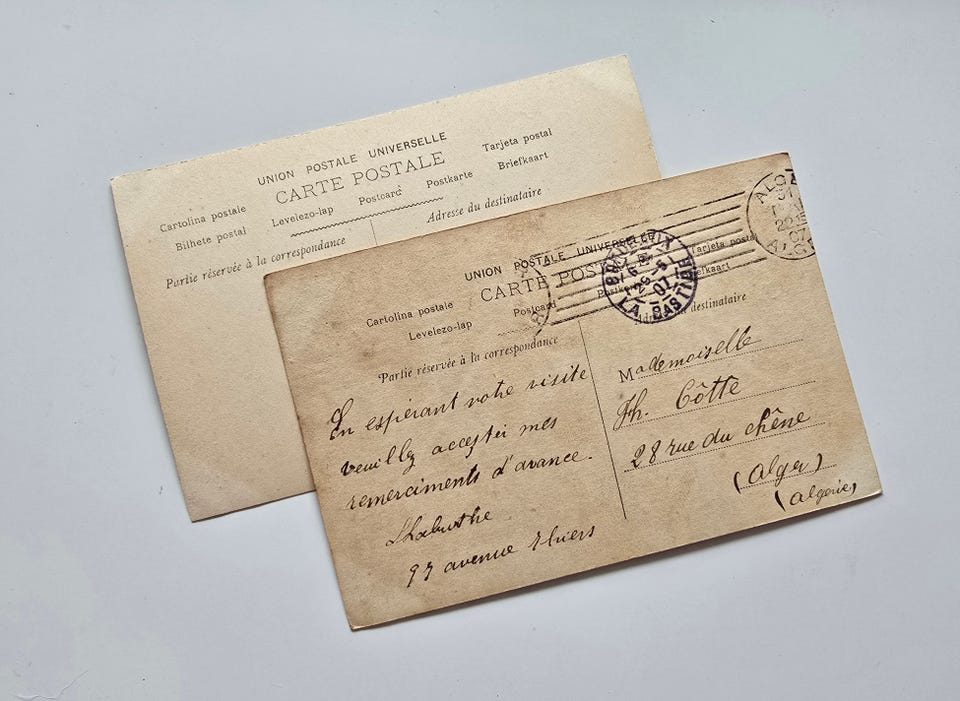 UNION POSTALE UNIVERSELLE
CARTE POSTALE
Tarjeta postal
Cartolina postale Levelezo-lap Postcard Postkarte Briefkaart
Bilhete postal
Partie réservée à la correspondance
Adresse du destinataire
UNION POSTALE UNIVERSELLE
CARTE POSTALE
Tarjeta postal
Cartolina postale Levelezo-lap Postcard Postkarte Briefkaart
Partie réservée à la correspondance
Adresse du destinataire
LA BASTIDE
07
En espérant votre visite
veuillez accepter mes
remerciments d'avance.
97 avenue Thiers
Mademoiselle
Jh. Côtte
28 rue du chêne
(Alger)
(algerie)